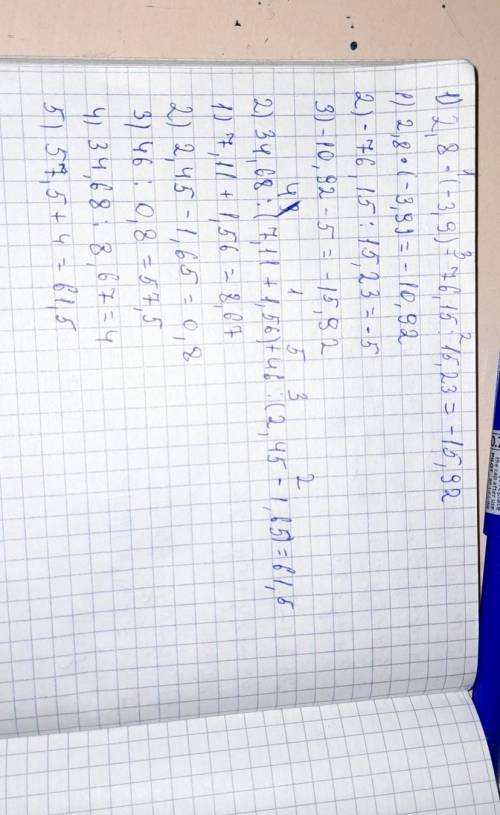 1 3 2
1) 2,8 · (-3,9) + 76,15 : 15,23 = -15,92
1) 2,8 · (-3,9) = -10,92
2) -76,15 : 15,23 = -5
3) -10,92 - 5 = -15,92
4 1 5 3 2
2) 34,68 : (7,11 + 1,56) + 46 : (2,45 - 1,65) = 61,5
1) 7,11 + 1,56 = 8,67
2) 2,45 - 1,65 = 0,8
3) 46 : 0,8 = 57,5
4) 34,68 : 8,67 = 4
5) 57,5 + 4 = 61,5